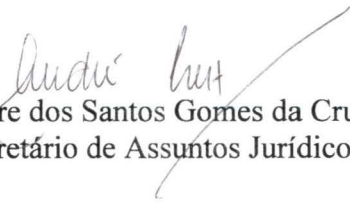 André Cruz
re dos Santos Gomes da Cru
retário de Assuntos Jurídico